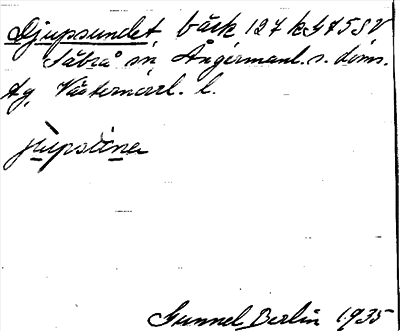 Djupsundet, bäck 127 k5 75 SV
Säbrå sn Ångermanl. s. doms.
Ag, Västernorrl. l.
jupsúna
Gunnel Berlin 1935